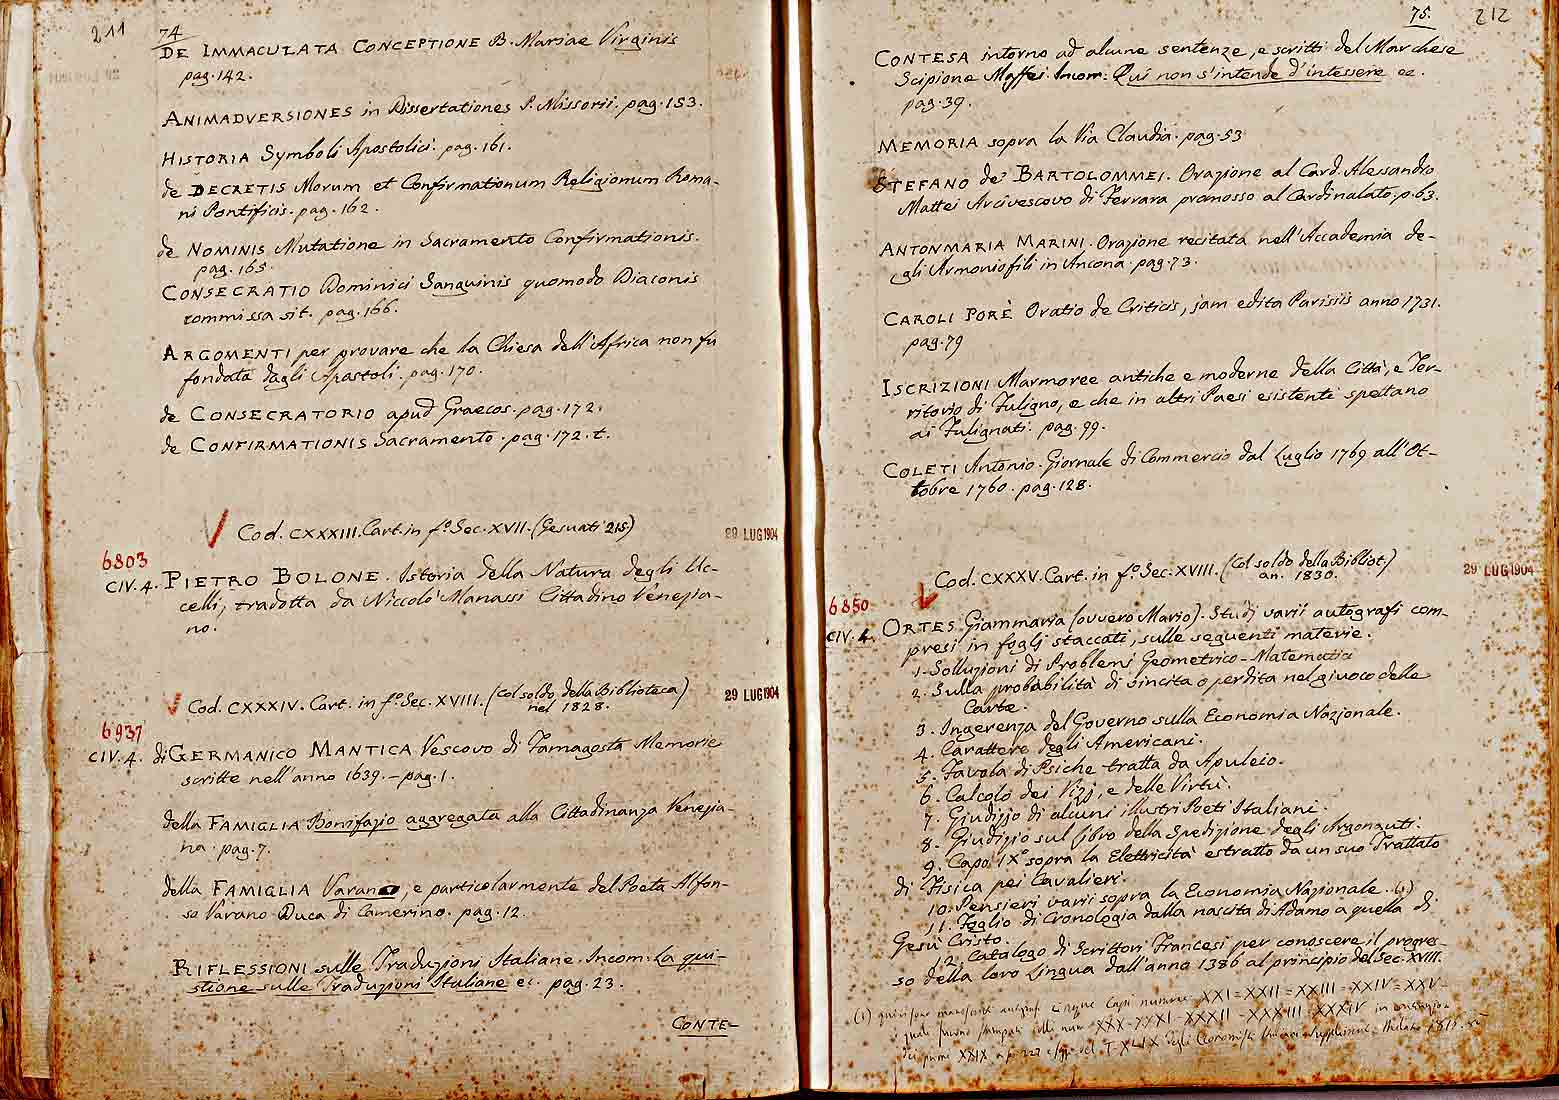 211
74
DE IMMACULATA CONCEPTIONE B. Mariae Virginis
pag. 142.
ANIMADVERSIONES in Dissertationes P. Missorii. pag. 153.
HISTORIA Symboli Apostolici. pag. 161.
de DECRETIS Morum et Confirmationum Religionum Roma-
ni Pontificis. pag. 162.
de NOMINIS Mutatione in Sacramento Confirmationis.
pag. 165.
CONSECRATIO Dominici Sanguinis quomodo Diaconis
commissa sit. pag. 166.
ARGOMENTI per provare che la Chiesa dell'Africa non fu
fondata dagli Apostoli. pag. 170.
de CONSECRATORIO apud Graecos. pag. 172.
de CONFIRMATIONIS Sacramento. pag. 172. t.
Cod. CXXXIII. Cart. in fº. Sec. XVII. (Gesuati 215)
29 LUG 1904
6803
CIV. 4. PIETRO BOLONE. Istoria della Natura degli Uc-
celli, tradotta da Niccolò Manassi Cittadino Venezia-
no.
Cod. CXXXIV. Cart. in fº. Sec. XVIII. (Col soldo della Biblioteca)
nel 1828.
29 LUG 1904
6937
CIV. 4. di GERMANICO MANTICA Vescovo di Famagosta Memorie
scritte nell'anno 1639. – pag. 1.
della FAMIGLIA Bonifazio aggregata alla Cittadinanza Venezia-
na. pag. 7.
della FAMIGLIA Varano, e particolarmente del Poeta Alfon-
so Varano Duca di Camerino. pag. 12.
RIFLESSIONI sulle Traduzioni Italiane. Incom: La qui-
stione sulle Traduzioni Italiane ec. pag. 23.
CONTE-
75.
212
CONTESA intorno ad alcune sentenze, e scritti del Marchese
Scipione Maffei. Incom: Qui non s'intende d'intessere ec.
pag. 39.
MEMORIA sopra la Via Claudia. pag. 53
STEFANO de' BARTOLOMMEI. Orazione al Card. Alessandro
Mattei Arcivescovo di Ferrara promosso al Cardinalato. p. 63.
ANTONMARIA MARINI. Orazione recitata nell'Accademia de-
gli Armoniofili in Ancona. pag. 73.
CAROLI PORÈ Oratio de Criticis, jam edita Parisiis anno 1731.
pag. 79
ISCRIZIONI Marmoree antiche e moderne della Città, e Ter-
ritorio di Fuligno, e che in altri Paesi esistenti spettano
ai Fulignati. pag. 99.
COLETI Antonio. Giornale di Commercio dal Luglio 1769 all'Ot-
tobre 1760. pag. 128.
Cod. CXXXV. Cart. in fº. Sec. XVIII. (Col soldo della Bibliot.)
an. 1830.
29 LUG 1904
6850
CIV. 4. ORTES Giammaria (ovvero Mario). Studj varii autografi com-
presi in fogli staccati, sulle seguenti materie.
1. Solluzioni di Problemi Geometrico-Matematici
2. Sulla probabilità di vincita o perdita nel giuoco delle
Carte.
3. Ingerenza del Governo sulla Economia Nazionale.
4. Carattere degli Americani.
5. Favola di Psiche tratta da Apuleio.
6. Calcolo dei Vizj, e delle Virtù.
7. Giudizio di alcuni illustri Poeti Italiani.
8. Giudizio sul libro della Spedizione degli Argonauti.
9. Capo IXº sopra la Elettricità estratto da un suo Trattato
di Fisica pei Cavalieri.
10. Pensieri varii sopra la Economia Nazionale. (1)
11. Foglio di Cronologia dalla nascita di Adamo a quella di
Gesù Cristo.
12. Catalogo di Scrittori Francesi per conoscere il progres-
so della loro Lingua dall'anno 1386 al principio del Sec. XVIII.
(1) cinque Capi numerati XXI = XXII = XXIII = XXIV = XXV
quali furono stampati XXX - XXXI - XXXII - XXXIII - XXXIV in
dei primi XXIX a p. 227 del T. XLIX degli Economisti